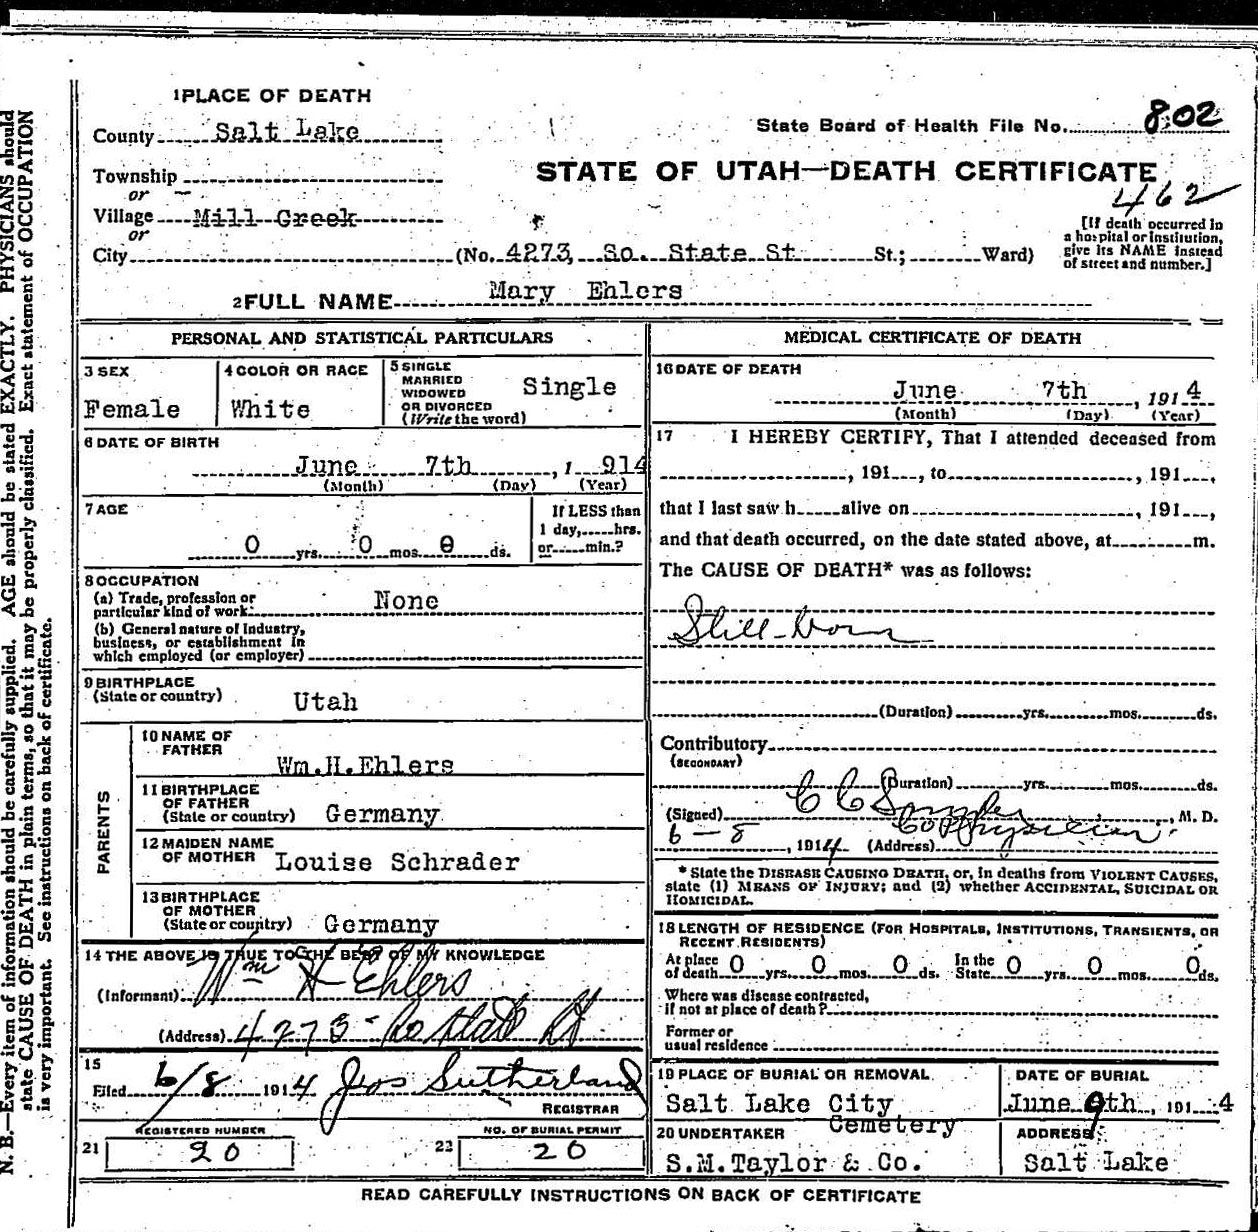 1 PLACE OF DEATH
County Salt Lake
State Board of Health File No. 802
STATE OF UTAH—DEATH CERTIFICATE
462
Township
or
Village Mill Creek
or
City (No. 4273, So. State St St.; Ward)
[If death occurred in
a hospital or institution,
give its NAME instead
of street and number.]
2 FULL NAME Mary Ehlers
PERSONAL AND STATISTICAL PARTICULARS
3 SEX
Female
4 COLOR OR RACE
White
5 SINGLE
MARRIED
WIDOWED
OR DIVORCED
(Write the word)
Single
6 DATE OF BIRTH
June 7th, 1 914
(Month) (Day) (Year)
7 AGE
0 yrs. 0 mos. 0 ds.
If LESS than
1 day,.....hrs.
or.....min.?
8 OCCUPATION
(a) Trade, profession or
particular kind of work. None
(b) General nature of Industry,
business, or establishment in
which employed (or employer)
9 BIRTHPLACE
(State or country) Utah
PARENTS
10 NAME OF
FATHER
Wm.H.Ehlers
11 BIRTHPLACE
OF FATHER
(State or country) Germany
12 MAIDEN NAME
OF MOTHER Louise Schrader
13 BIRTHPLACE
OF MOTHER
(State or country) Germany
14 THE ABOVE IS TRUE TO THE BEST OF MY KNOWLEDGE
(Informant) Wm H Ehlers
(Address) 4273 So State St
15
Filed 6/8 1914 Jos Sutherland
REGISTRAR
REGISTERED NUMBER
21 20
NO. OF BURIAL PERMIT
22 20
MEDICAL CERTIFICATE OF DEATH
16 DATE OF DEATH
June 7th, 1914
(Month) (Day) (Year)
17 I HEREBY CERTIFY, That I attended deceased from
, 191..., to , 191...,
that I last saw h alive on , 191...,
and that death occurred, on the date stated above, at m.
The CAUSE OF DEATH* was as follows:
Still-born
(Duration) yrs. mos. ds.
Contributory
(SECONDARY)
(Duration) yrs. mos. ds.
(Signed) C C , M. D.
6-8, 1914 (Address) Co Physician
* State the DISEASE CAUSING DEATH, or, in deaths from VIOLENT CAUSES,
state (1) MEANS OF INJURY; and (2) whether ACCIDENTAL, SUICIDAL OR
HOMICIDAL.
18 LENGTH OF RESIDENCE (FOR HOSPITALS, INSTITUTIONS, TRANSIENTS, OR
RECENT RESIDENTS)
At place
of death 0 yrs. 0 mos. 0 ds. In the
State 0 yrs. 0 mos. 0 ds.
Where was disease contracted,
if not at place of death?
Former or
usual residence
19 PLACE OF BURIAL OR REMOVAL
Salt Lake City
Cemetery
DATE OF BURIAL
June 9th, 1914
20 UNDERTAKER
S.M.Taylor & Co.
ADDRESS
Salt Lake
READ CAREFULLY INSTRUCTIONS ON BACK OF CERTIFICATE
N. B.—Every item of information should be carefully supplied. AGE should be stated EXACTLY. PHYSICIANS should
state CAUSE OF DEATH in plain terms, so that it may be properly classified. Exact statement of OCCUPATION
is very important. See instructions on back of certificate.